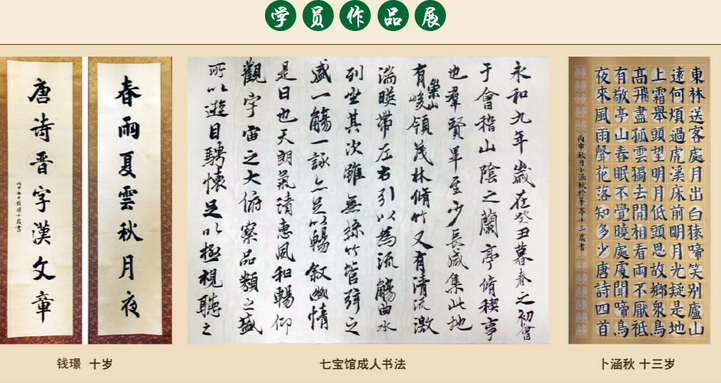 学员作品展
春雨夏雲秋月夜
唐诗晋字漢文章
钱璟 十岁
永和九年歲在癸丑暮春之初會
于會稽山陰之蘭亭脩稧事
也羣賢畢至少長咸集此地
有崇山峻領茂林脩竹又有清流激
湍暎帶左右引以為流觴曲水
列坐其次雖無絲竹管弦之
盛一觴一詠亦足以暢叙幽情
是日也天朗氣清惠風和暢仰
觀宇宙之大俯察品類之盛
所以遊目騁懷足以極視聽之
七宝馆成人书法
東林送客處月出白猿啼笑別廬山
遠何煩過虎溪床前明月光疑是地
上霜舉頭望明月低頭思故鄉衆鳥
高飛盡孤雲獨去閒相看兩不厭祇
有敬亭山春眠不覺曉處處聞啼鳥
夜來風雨聲花落知多少唐詩四首
卜涵秋 十三岁